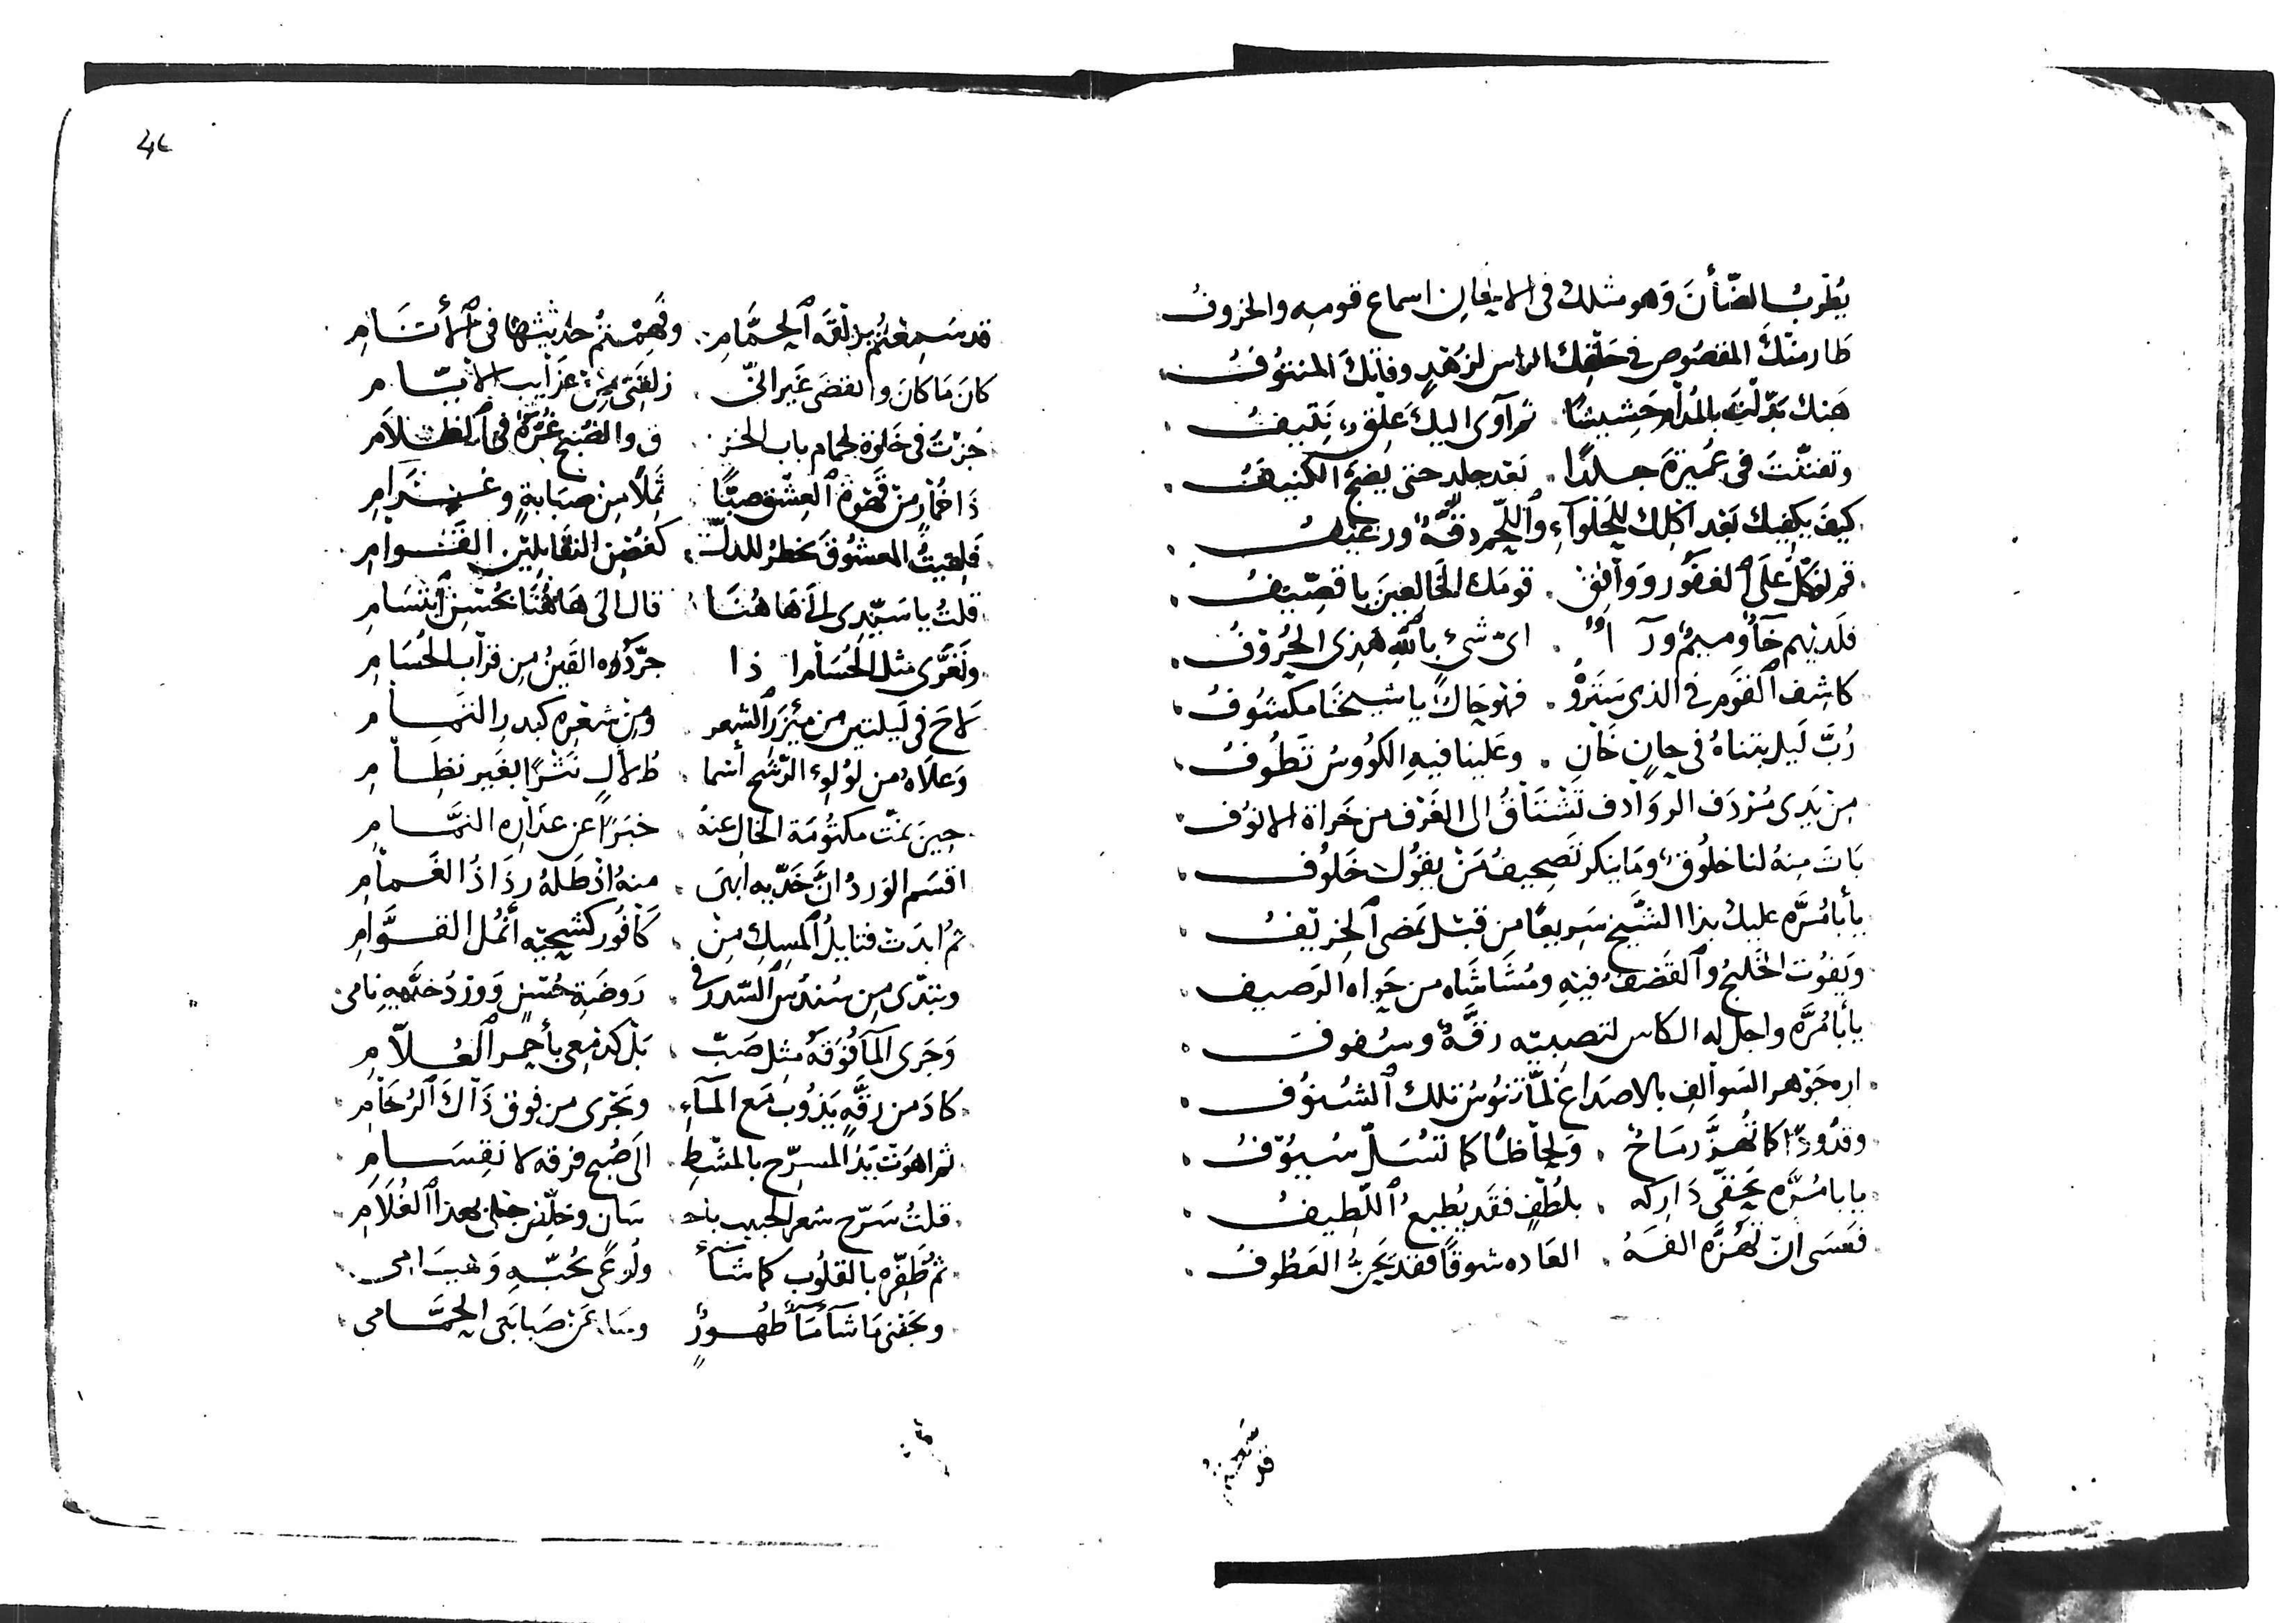 يُطربُ الضّأنَ وَهو مثلك فى الايقان اسماع قومه والخروفُ
طار منكَ المقصُوص فى حَلقِك الراس لزُهْدٍ وفاتكَ المنتوُفُ
هَبْك بَدّلتَ بالمُدام حَشيشًا ثم آوى اليكَ عِلقٌ نَتيفُ
وتفننّتَ فى عُميرَة جلدًا بَعد جلدٍ حتى يَضجَّ الكنيفُ
كيفَ يكفيك بَعد اكلك للحَلوآءِ واللّحمِ دقّهٌ ورغيفُ
قم توَكّل علَى الغفُور ووافِق قومَك الخَالِعينَ يا قِصّيفُ
فلَديهم خآءٌ وميمٌ ورآءٌ اىّ شىءٍ بالله هذى الحُروْفُ
كاشف القَوم فى الذى سَتَروْهُ فهوَ جَاكَ يا شيخنَا مكشوُفُ
رُبَّ لَيلٍ بتناهُ فى جان خَانٍ وعَلينا فيهِ الكؤوسُ تَطُوفُ
مِن يَدى مُردَف الروَادف تَشْتَاقُ الى الغَرْف من خَراهُ الانوُف
بَاتَ مِنهُ لنا خلُوقٌ ومَا ينكر تَصحيفُ مَنْ يقوُل خَلوُف
يأبا مُرَّه عليك بذا الشّيخ سَريعًا من قبْل يَمضى الخريْفُ
ويَفوُت الخليجُ والقَصْفُ فيْهِ ومُشَاشَاه من جَواه الرَصيف
يأبا مُرَّه واجل له الكاس لتصبيْه رقَّةٌ وشفوفُ
ارِه جَوْهر السَوالف بالاصدَاغ لمّا تنُوسُ تلك الشُنوُف
وقدُودًا كما تُهزُّ رمَاحٌ ولِحاظًا كما تُسَلّ سُيوُفُ
يابا مُرَّه بحَقّى دَاركه بلُطفٍ فقَد يُطيعُ اللّطيفُ
فعَسَى انّ تَهُزَّه الفَهُ العَاده شوقًا فقد يَحِنُّ العَطُوفُ
قد سَمِعتُم بزلْقَه الحمَّامِ وفَهِمْتمُ حدَيثَها فى الأنَامِ
كانَ مَا كانَ وانقضَى غَير انّى زلقَتى مِن عَجَايب الايّام
جُزتُ فى خَلوة لحمام باب الخر ق والصُبح غُرَّةٌ فى الظلاَم
ذَا خُمَارٍ من قَهوَة العِشق صبًّا ثَمِلاً مِن صبَابةٍ وغَرَامِ
فلقيتُ المعشُوقَ يخطرُ للدلّ كغُصْن النقَا بليْن القَوَامِ
قلتُ يا سَيّدى الى هَا هُنَا قال الىَ هَاهُنَا بحُسْنِ ابتسَامِ
وتَعَرَّى مثل الحُسَام اذا جرّدَهُ القَينُ مِن قرَابِ الحُسَامِ
لاحَ فى لَيلتين من مِئزَر الشعر ومِن شعْرِه كبدرِ التمَام
وَعلاَهُ من لؤلوء الرّشح أسما طُ لآلٍ نَثْرًا بغَيرِ نظَامِ
حِينَ نمّت مكتوُمَة الخال عنهُ خبَرًا عن عذَارِه النمَّام
اقسَم الوَردُ انَّ خَدَّيه ابهَى منهُ اذ طَلهُ رذَاذُ الغَمامِ
ثمُ ابدَتْ فتايلُ المِسكِ مِنْ كَافُور كشحيْه أنمُل القوَّامِ
وتبَدّى مِن سُندُس السّدر فى رَوضَةِ حُسْنٍ وَورْدُ خَدّيهِ نامى
وَجَرى المآ فَوقَهُ مثِل صَبّ بَل كدَمعى بأحمر العُلاّمِ
كادَ من رقَّهٍ يَذوُب مَع المآءِ ويَجرى من فوق ذَاكَ الرُخَامِ
ثم اهوَتْ يَدُ المسرّح بالمشْطِ الَى صُبح فرقه لانقِسَامِ
قلتُ سَرّح شعر الحَبيب باحـ سَان وخَلّص خلى بهذا الغُلاَمِ
ثمُ ظَفّره بالقلوُب كما شآءَ ولُوعى بحُبّهِ وَهيَامى
وبجَفنى مَا شآءَ مَآءٌ طَهُورٌ ومسَاءً من صَبابتى الحمَّامى